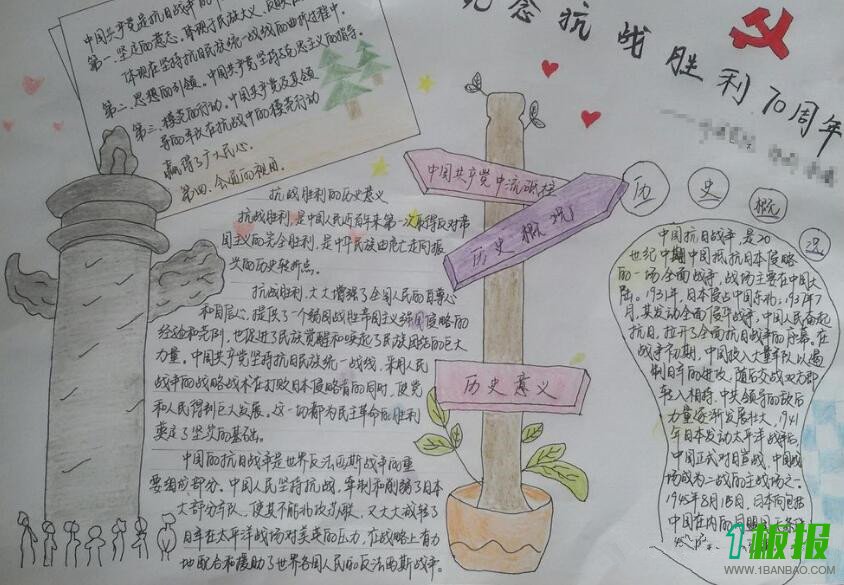 纪念抗战胜利70周年
中国共产党是抗日战争的中
第一、坚定的意志。体现于民族大义、
体现在坚持抗日民族统一战线的曲折过程中。
第二、思想的引领。中国共产党坚持马克思主义的指导。
第三、模范的行动。中国共产党及其领
导的军队在抗战中的模范行动
赢得了广大民心。
第四、
抗战胜利的历史意义
抗战胜利,是中国人民近百年来第一次取得反对帝
国主义的完全胜利,是中华民族由危亡走向振
兴的历史转折点。
抗战胜利,大大增强了全国人民的自尊心
和自信心,提供了一个弱国战胜帝国主义强国侵略的
经验和先例,也促进了民族觉醒和唤起了民族团结的巨大
力量。中国共产党坚持抗日民族统一战线,采用人民
战争的战略战术在打败日本侵略者的同时,使党
和人民得到巨大发展。这一切都为民主革命的胜利
奠定了坚实的基础。
中国的抗日战争是世界反法西斯战争的重
要组成部分。中国人民坚持抗战,牵制和削弱了日本
大部分军队,使其不能北攻苏联,又大大减轻了
日军在太平洋战场对美英的压力,在战略上有力
地配合和援助了世界各国人民的反法西斯战争。
中国共产党中流砥柱
历史概况
历史意义
历史概况
中国抗日战争,是20
世纪中期中国抵抗日本侵略
的一场全面战争,战场主要在中国大
陆。1931年,日本侵占中国东北;1937年7
月,其发动全面侵华战争,中国人民奋起
抗日,拉开了全面抗日战争的序幕。在
战争初期,中国投入大量军队以遏
制日军的进攻,随后交战双方即
转入相持,中共领导的敌后
力量逐渐发展壮大,1941
年日本发动太平洋战争后,
中国正式对日宣战,中国战
场成为二战的主战场之一。
1945年8月15日,日本向包括
中国在内的同盟国无条件
1板报
WWW.1BANBAO.COM